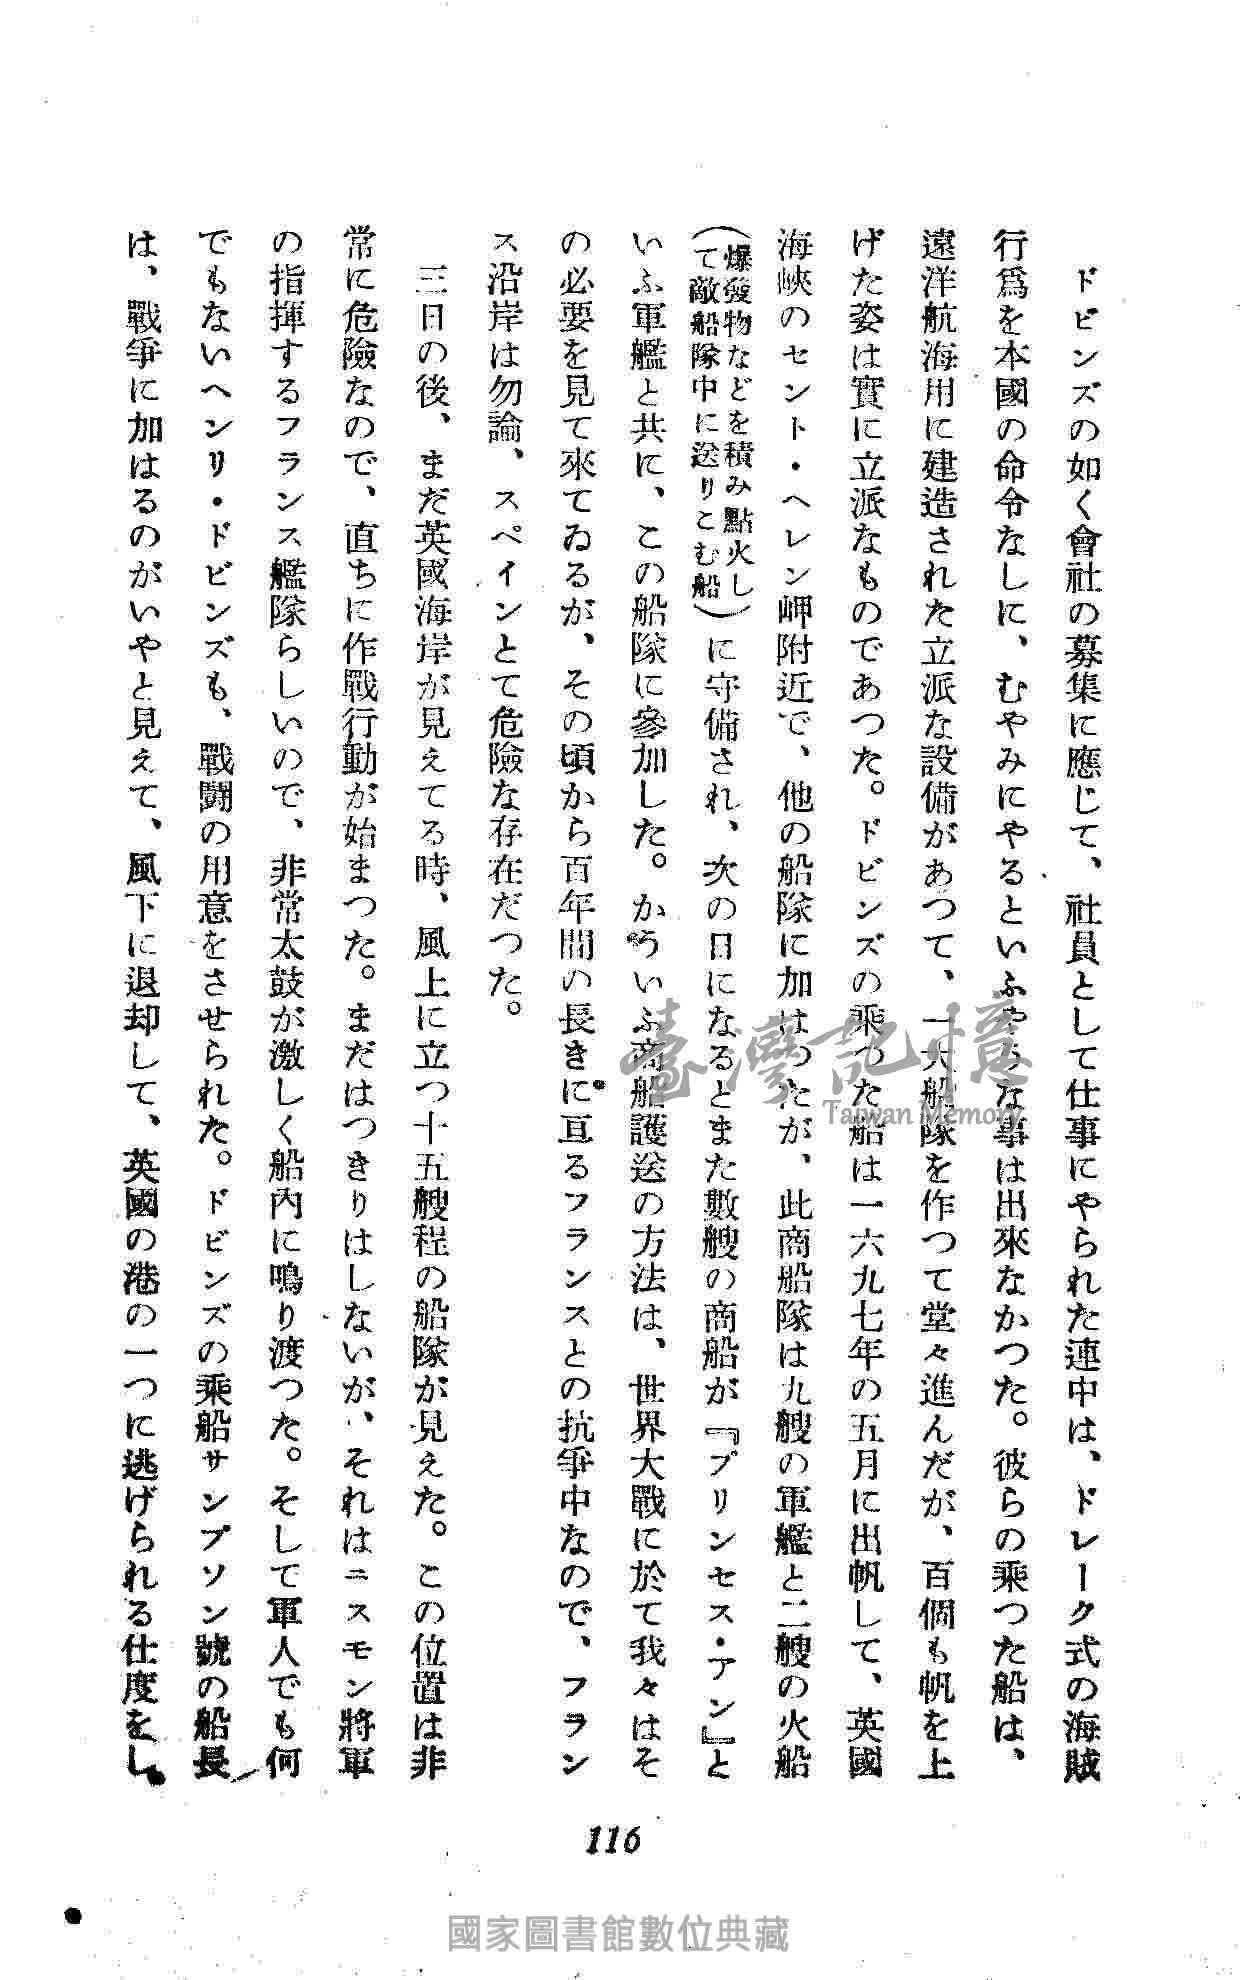 ドビンズの如く會社の募集に應じて、社員として仕事にやられた連中は、ドレーク式の海賊
行爲を本國の命令なしに、むやみにやるといふやうな事は出來なかつた。彼らの乘つた船は、
遠洋航海用に建造された立派な設備があつて、一大船隊を作つて堂々進んだが、百個も帆を上
げた姿は實に立派なものであつた。ドビンズの乘つた船は一六九七年の五月に出帆して、英國
海峽のセント・ヘレン岬附近で、他の船隊に加はつたが、此商船隊は九艘の軍艦と二艘の火船
(爆發物などを積み點火して敵船隊中に送りこむ船)に守備され、次の日になるとまた數艘の商船が『プリンセス・アン』と
いふ軍艦と共に、この船隊に參加した。かういふ商船護送の方法は、世界大戰に於て我々はそ
の必要を見て來てゐるが、その頃から百年間の長きに亙るフランスとの抗爭中なので、フラン
ス沿岸は勿論、スペインとて危險な存在だつた。
三日の後、まだ英國海岸が見えてる時、風上に立つ十五艘程の船隊が見えた。この位置は非
常に危險なので、直ちに作戰行動が始まつた。まだはつきりはしないが、それはニスモン將軍
の指揮するフランス艦隊らしいので、非常太鼓が激しく船內に鳴り渡つた。そして軍人でも何
でもないヘンリ・ドビンズも、戰鬪の用意をさせられた。ドビンズの乘船サンプソン號の船長
は、戰爭に加はるのがいやと見えて、風下に退却して、英國の港の一つに逃げられる仕度をし
116
臺灣記憶
Taiwan Memory
國家圖書館數位典藏